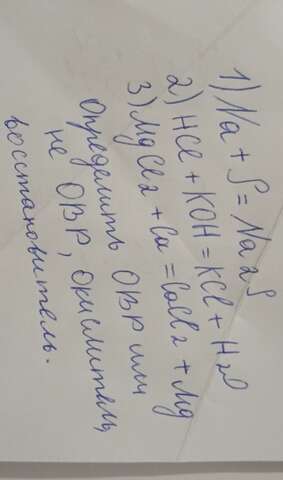 1) Na + S = Na2S
2) HCl + KOH = KCl + H2O
3) MgCl2 + Ca = CaCl2 + Mg
Определить ОВР или
не ОВР, окислитель,
восстановитель.